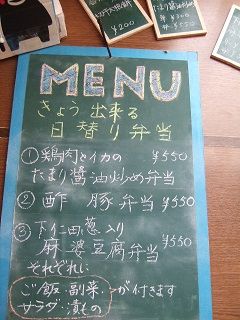 MENU
きょう 出来る
日替り弁当
① 鶏肉とイカの ¥550
たまり醤油炒め弁当
② 酢豚弁当 ¥550
③ 下仁田葱入り
麻婆豆腐弁当 ¥550
それぞれに
ご飯・副菜・
サラダ・漬もの
が付きます
¥200
¥300